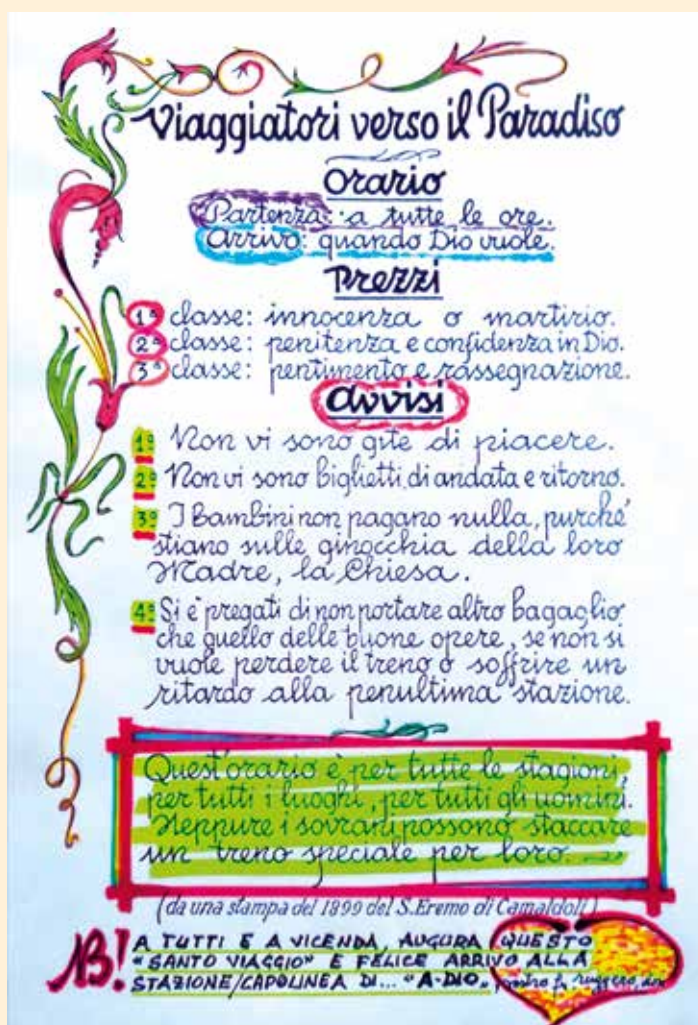 Viaggiatori verso il Paradiso
Orario
Partenza: a tutte le ore.
Arrivo: quando Dio vuole.
Prezzi
1ª classe: innocenza o martirio.
2ª classe: penitenza e confidenza in Dio.
3ª classe: pentimento e rassegnazione.
Avvisi
1º Non vi sono gite di piacere.
2º Non vi sono biglietti di andata e ritorno.
3º I Bambini non pagano nulla, purché
stiano sulle ginocchia della loro
Madre, la Chiesa.
4º Si è pregati di non portare altro bagaglio
che quello delle buone opere, se non si
vuole perdere il treno o soffrire un
ritardo alla penultima stazione.
Quest'orario è per tutte le stagioni,
per tutti i luoghi, per tutti gli uomini.
Neppure i sovrani possono staccare
un treno speciale per loro
(da una stampa del 1899 del S. Eremo di Camaldoli)
NB! A TUTTI E A VICENDA, AUGURA QUESTO
"SANTO VIAGGIO" E FELICE ARRIVO ALLA
STAZIONE/CAPOLINEA DI... "A-DIO" ruggero